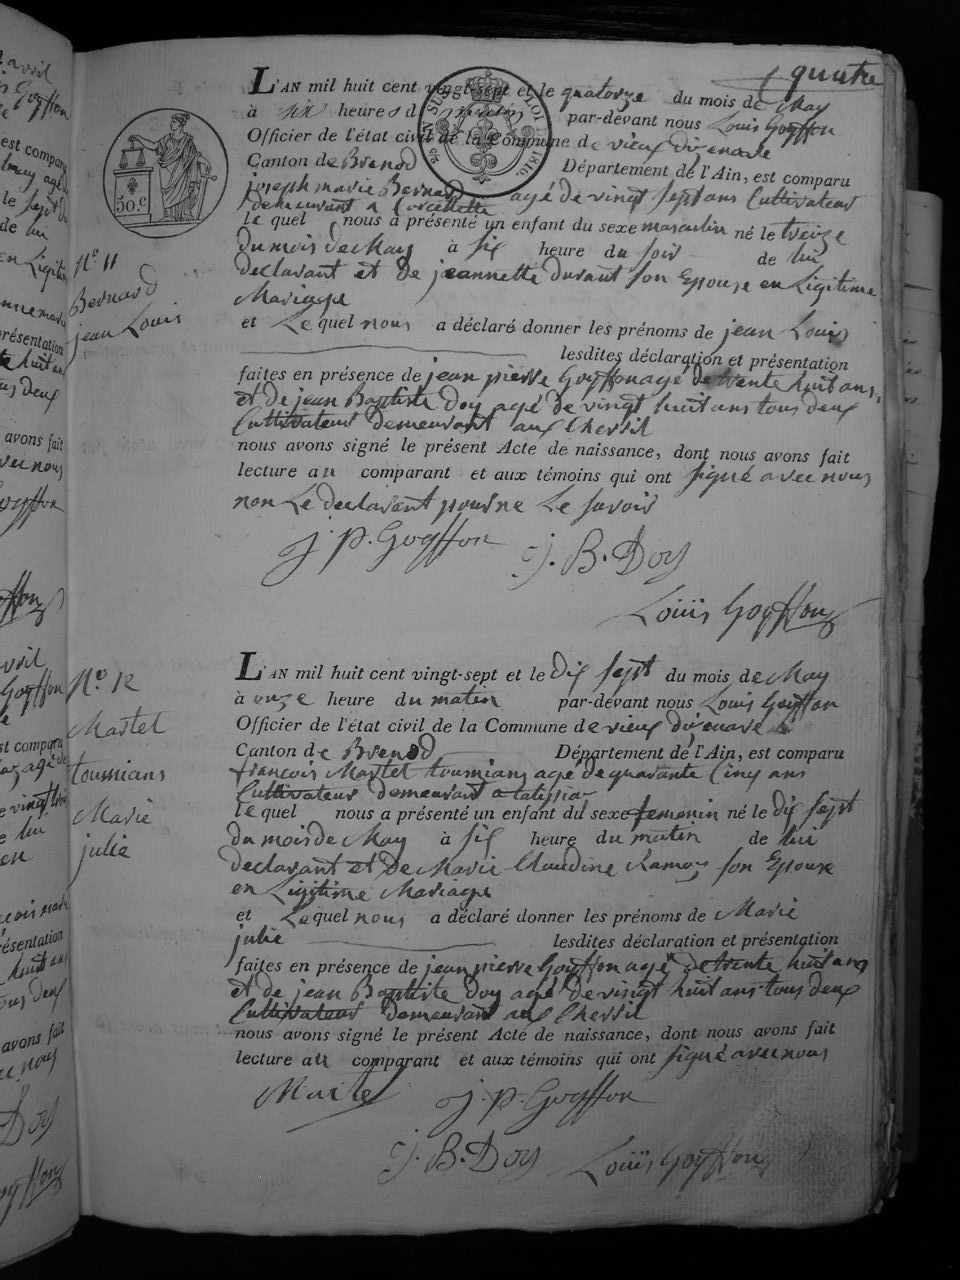 quatre
L'AN mil huit cent vingt-sept et le quatorze du mois de May
à dix heures d matin par-devant nous Louis Goyffon
Officier de l'état civil de la Commune de vieux d'izenave
Canton de Brenod Département de l'Ain, est comparu
joseph marie Bernard agé de vingt sept ans Cultivateur
demeurant a Corcellette
le quel nous a présenté un enfant du sexe masculin né le treize
du mois de May à six heure du soir de lui
declarant et de jeannette durant son Epouse en Ligitime
Mariage
et Le quel nous a déclaré donner les prénoms de jean Louis
lesdites déclaration et présentation
faites en présence de jean pierre Goyffon agé de trente huit ans
et de jean Baptiste Doy agé de vingt huit ans tous deux
Cultivateur demeurant aux Chersil
nous avons signé le présent Acte de naissance, dont nous avons fait
lecture au comparant et aux témoins qui ont signé avec nous
non Le declarant pour ne Le savoir
j. p. Goyffon
j. B. Doy
Louis Goyffon
N° 11
Bernard
jean Louis
50.c
L'AN mil huit cent vingt-sept et le Dix sept du mois de May
à onze heure du matin par-devant nous Louis Goyffon
Officier de l'état civil de la Commune de vieux d'izenave
Canton de Brenod Département de l'Ain, est comparu
francois Martel toumians agé de quarante Cinq ans
Cultivateur demeurant a
le quel nous a présenté un enfant du sexe femenin né le dix sept
du mois de May à six heure du matin de lui
declarant et de Marie Claudine Ramoy son Epouse
en Ligitime Mariage
et Le quel nous a déclaré donner les prénoms de Marie
julie lesdites déclaration et présentation
faites en présence de jean pierre Goyffon agé de trente huit ans
et de jean Baptiste Doy agé de vingt huit ans tous deux
Cultivateur demeurant aux Chersil
nous avons signé le présent Acte de naissance, dont nous avons fait
lecture au comparant et aux témoins qui ont signé avec nous
Martel
j. p. Goyffon
j. B. Doy
Louis Goyffon
N° 12
Martel
toumians
Marie
julie